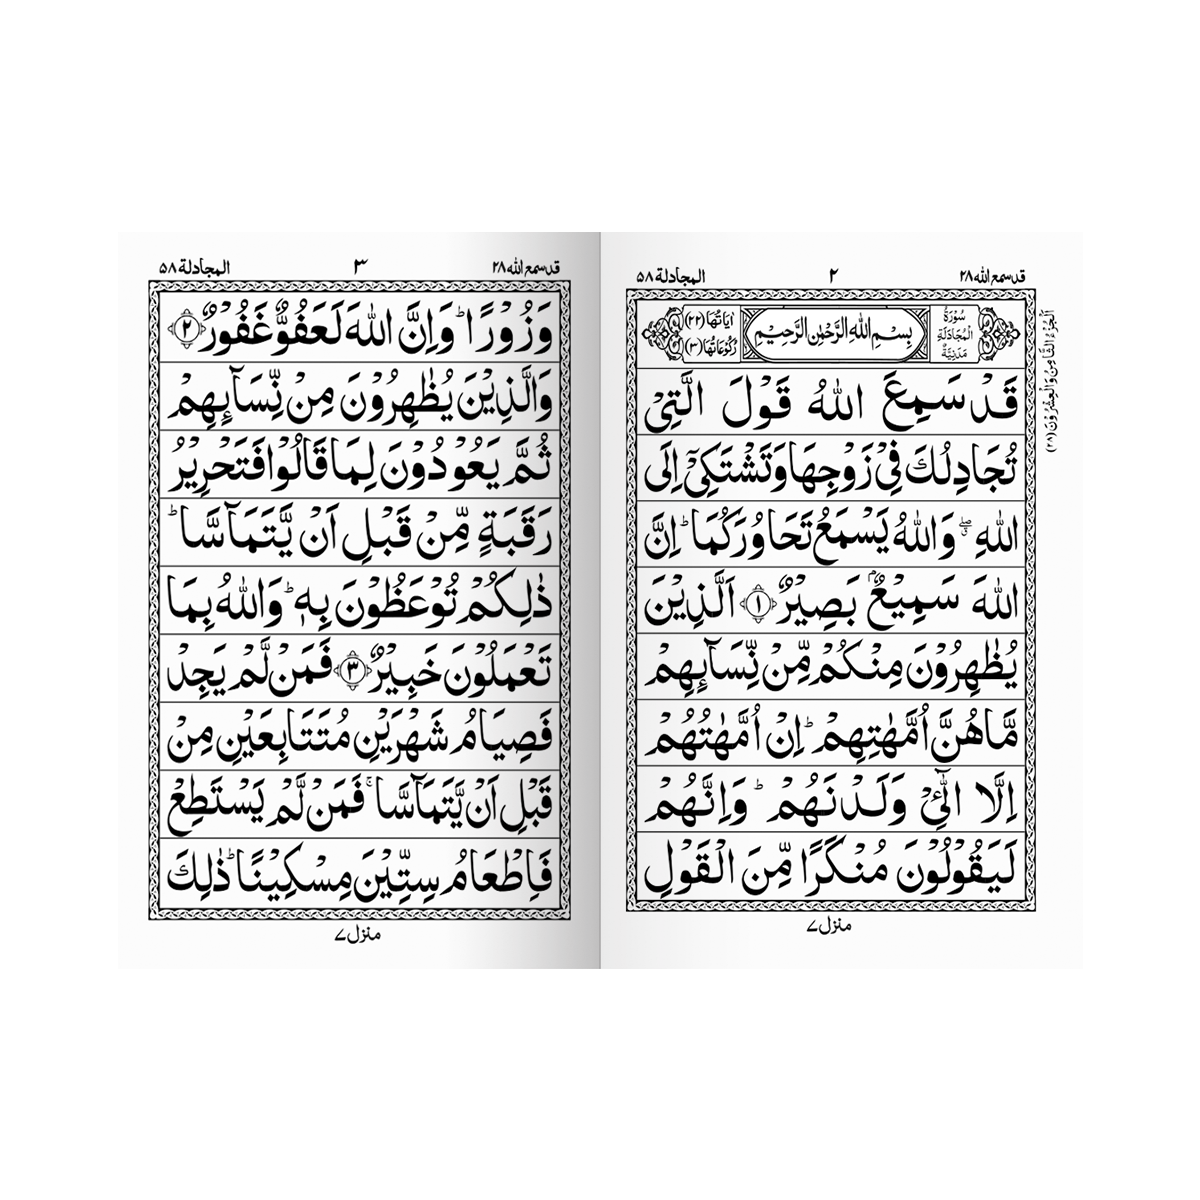 قد سمع الله ٢٨
٢
المجادلة ٥٨
سُوْرَةُ الْمُجَادَلَةِ مَدَنِيَّةٌ
بِسْمِ اللهِ الرَّحْمٰنِ الرَّحِيْمِ
اٰيَاتُهَا (٢٢)
رُكُوْعَاتُهَا (٣)
قَدْ سَمِعَ اللهُ قَوْلَ الَّتِيْ
تُجَادِلُكَ فِيْ زَوْجِهَا وَتَشْتَكِيْٓ اِلَى
اللهِ ۖ وَاللهُ يَسْمَعُ تَحَاوُرَكُمَا ؕ اِنَّ
اللهَ سَمِيْعٌۢ بَصِيْرٌ ﴿١﴾ اَلَّذِيْنَ
يُظٰهِرُوْنَ مِنْكُمْ مِّنْ نِّسَآئِهِمْ
مَّا هُنَّ اُمَّهٰتِهِمْ ؕ اِنْ اُمَّهٰتُهُمْ
اِلَّا الّٰٓئِيْ وَلَدْنَهُمْ ؕ وَاِنَّهُمْ
لَيَقُوْلُوْنَ مُنْكَرًا مِّنَ الْقَوْلِ
منزل ٧
اَلْجُزْءُ الثَّامِنُ وَالْعِشْرُوْنَ (٢٨)
قد سمع الله ٢٨
٣
المجادلة ٥٨
وَزُوْرًا ؕ وَاِنَّ اللهَ لَعَفُوٌّ غَفُوْرٌ ﴿٢﴾
وَالَّذِيْنَ يُظٰهِرُوْنَ مِنْ نِّسَآئِهِمْ
ثُمَّ يَعُوْدُوْنَ لِمَا قَالُوْا فَتَحْرِيْرُ
رَقَبَةٍ مِّنْ قَبْلِ اَنْ يَّتَمَآسَّا ؕ
ذٰلِكُمْ تُوْعَظُوْنَ بِهٖ ؕ وَاللهُ بِمَا
تَعْمَلُوْنَ خَبِيْرٌ ﴿٣﴾ فَمَنْ لَّمْ يَجِدْ
فَصِيَامُ شَهْرَيْنِ مُتَتَابِعَيْنِ مِنْ
قَبْلِ اَنْ يَّتَمَآسَّا ۚ فَمَنْ لَّمْ يَسْتَطِعْ
فَاِطْعَامُ سِتِّيْنَ مِسْكِيْنًا ؕ ذٰلِكَ
منزل ٧